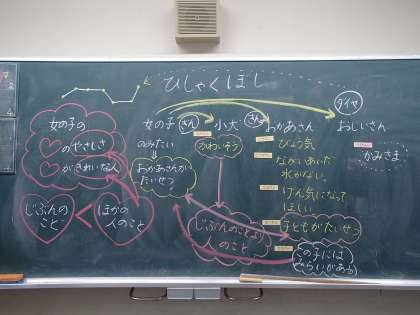 ひしゃくほし
女の子の
のやさしさ
がきれいな人
じぶんの
こと
<
ほかの
人のこと
女の子
ぎん
のみたい
おかあさんが
たいせつ
小犬
かわいそう
じぶんのことより
人のこと
おかあさん
きん
びょう気
ながいあいだ
水がない。
げん気になって
ほしい。
子どもがたいせつ
この子には
みらいがある
ダイヤ
おじいさん
かみさま